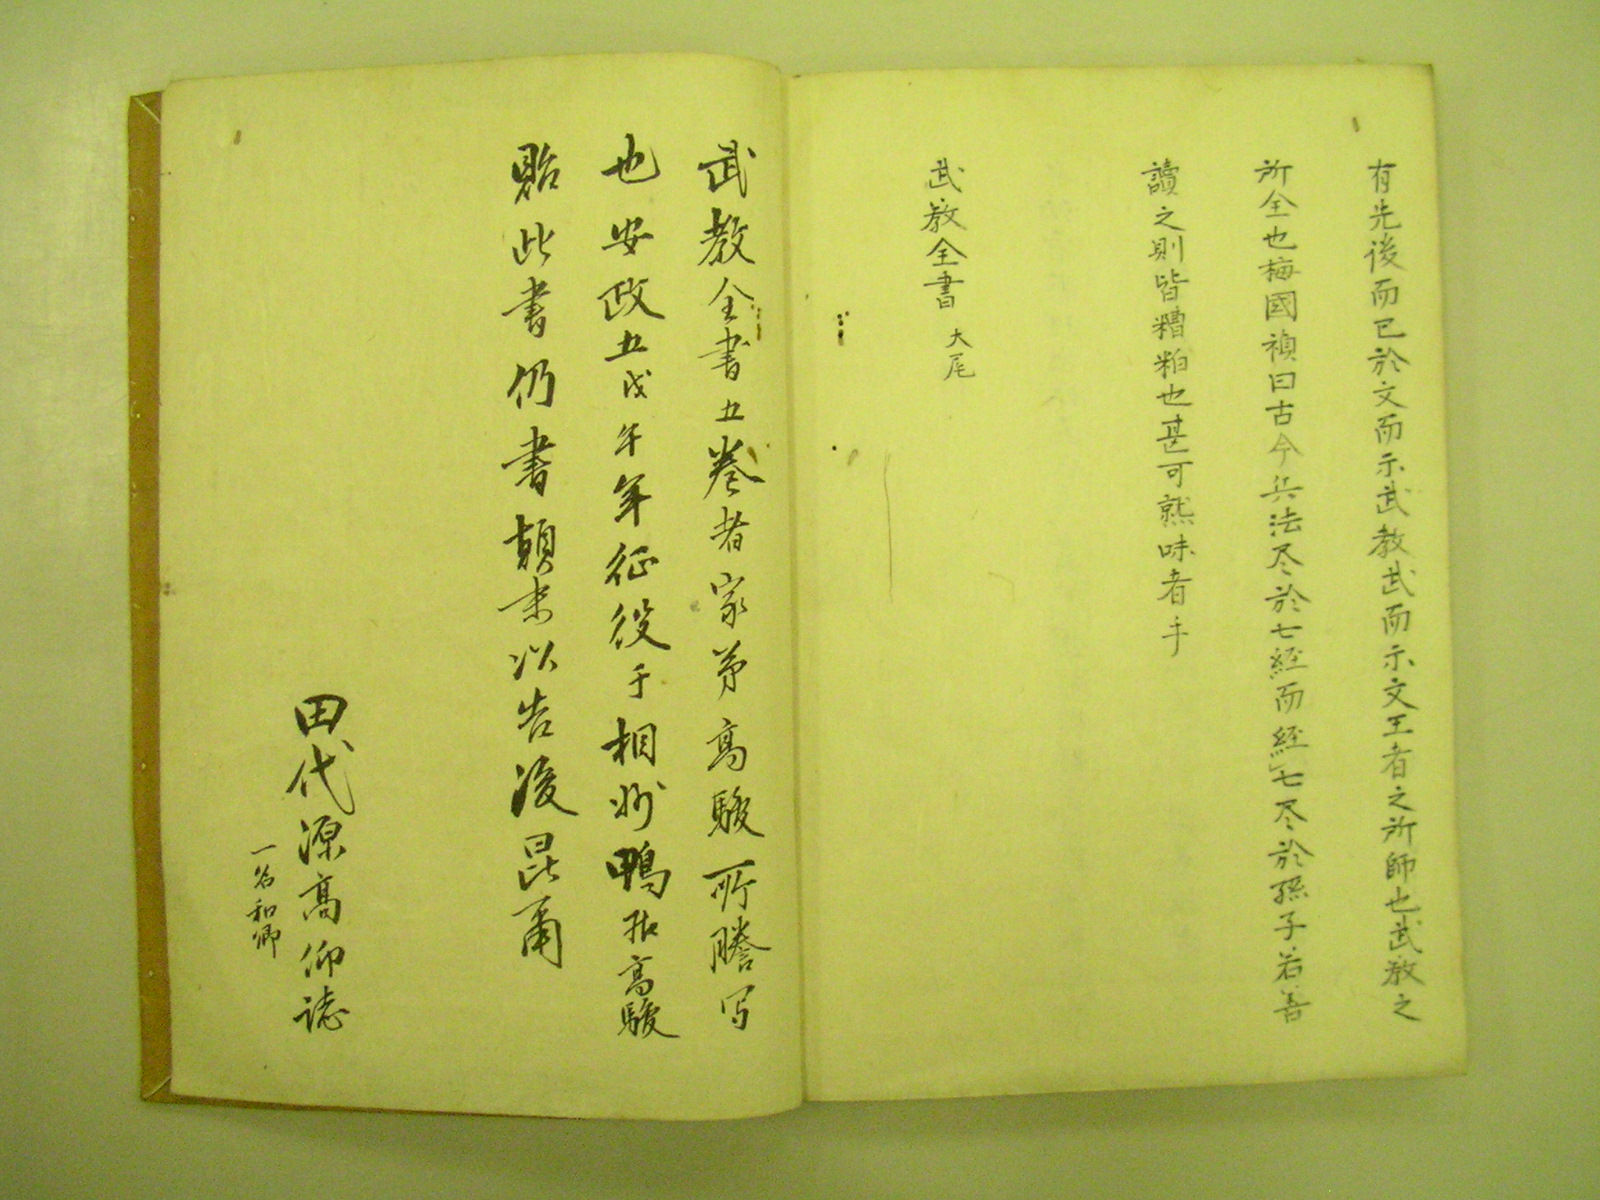 有先後而已於文而示武教武而示文王者之所師也武教之
所全也梅國禎曰古今兵法尽於七経而経七尽於孫子若善
讀之則皆糟粕也甚可熟味者乎
武教全書 大尾
武教全書五巻者家弟高駿所謄写
也安政五戊午年征役于相州鴨居高駿
貽此書仍書顛末以告後昆甬
田代源高仰誌
一名和卿